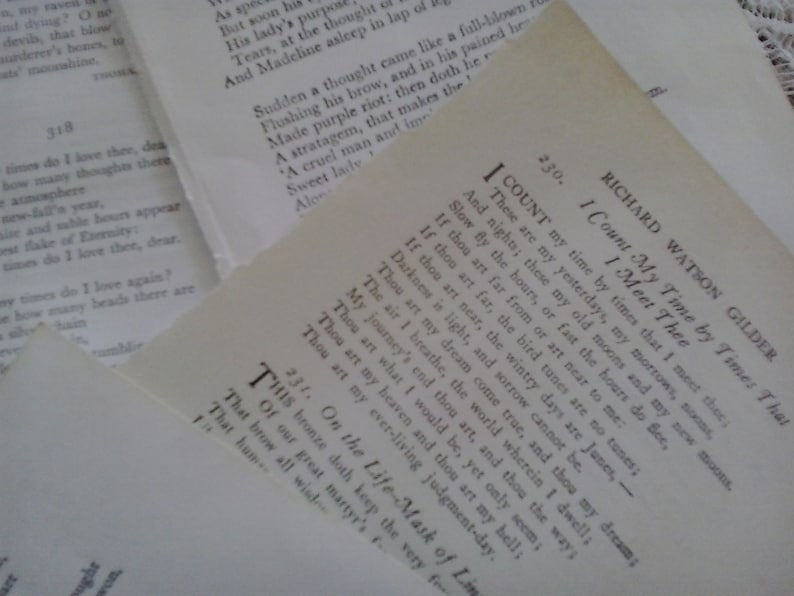 , my raven is
nd dying? O no
devils, that blow
urderer's bones, to
ats' moonshine.
318
times do I love thee, dear
how many thoughts there
atmosphere
new-fall'n year,
and sable hours appear
est flake of Eternity:
times do I love thee, dear.
times do I love again?
how many beads there are
chain
As spec
But soon his
His lady's purpose,
Tears, at the thought of
And Madeline asleep in lap of leg
Sudden a thought came like a full-blown ro
Flushing his brow, and in his pained hea
Made purple riot: then doth he pr
A stratagem, that makes the
'A cruel man and imp
Sweet lady,
Alon
RICHARD WATSON GILDER
230. I Count My Time by Times That
I Meet Thee
I COUNT my time by times that I meet thee;
These are my yesterdays, my morrows, noons,
And nights; these my old moons and my new moons.
Slow fly the hours, or fast the hours do flee,
If thou art far from or art near to me:
If thou art far, the bird tunes are no tunes;
If thou art near, the wintry days are Junes,—
Darkness is light, and sorrow cannot be.
Thou art my dream come true, and thou my dream;
The air I breathe, the world wherein I dwell;
My journey's end thou art, and thou the way;
Thou art what I would be, yet only seem;
Thou art my heaven and thou art my hell;
Thou art my ever-living judgment-day.
231. On the Life-Mask of Lin
THIS bronze doth keep the very
Of our great martyr's
That brow all wisdo
That huma
ought